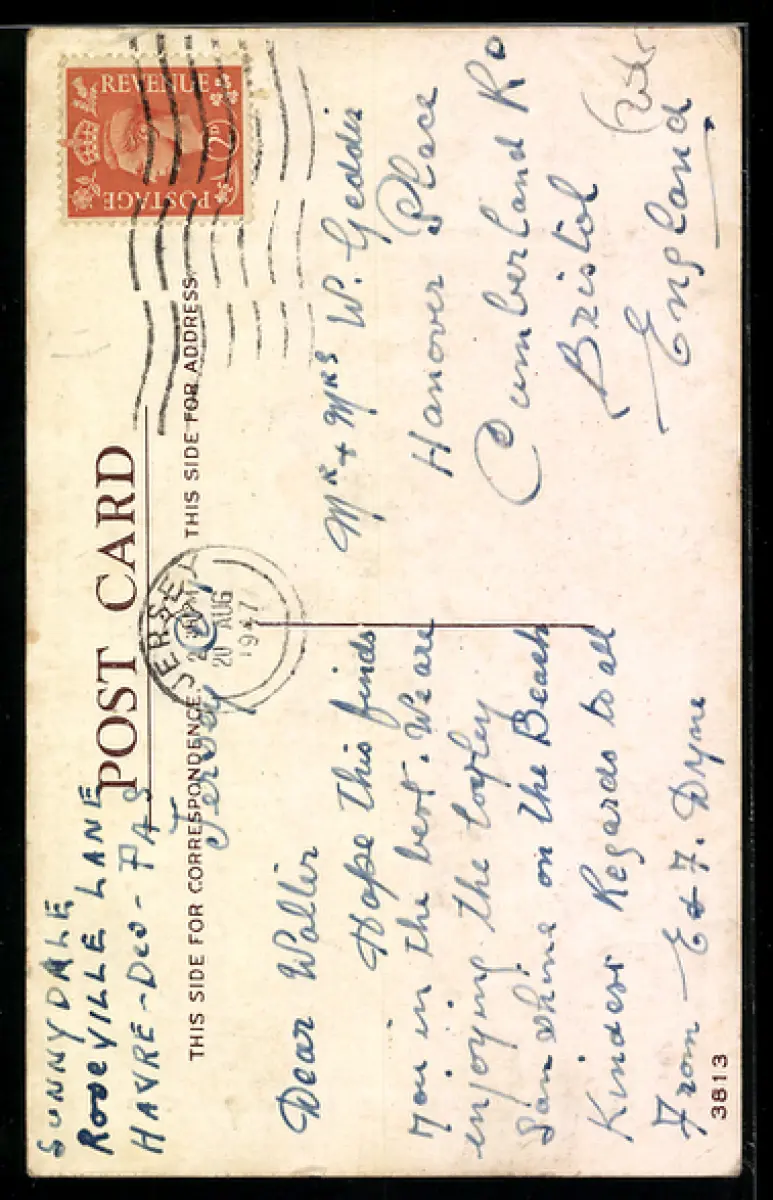 SUNNYDALE
ROSEVILLE LANE
HAVRE-DES-PAS
Jersey
POST CARD
THIS SIDE FOR CORRESPONDENCE.
THIS SIDE FOR ADDRESS
REVENUE
2D
POSTAGE
JERSEY
20 AUG
1947
Dear Walter
Hope this finds
you in the best. We are
enjoying the lovley
Sun shine on the Beach
Kindest Regards to all
From E & F. Dyne
3813
Mr & Mrs W. Geddis
Hanover Place
Cumberland Rd
Bristol
England